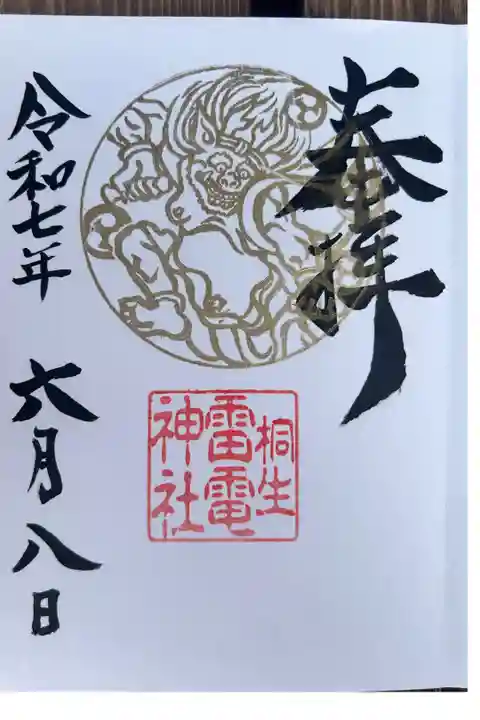 奉拝
桐生
雷電
神社
令和七年 六月八日